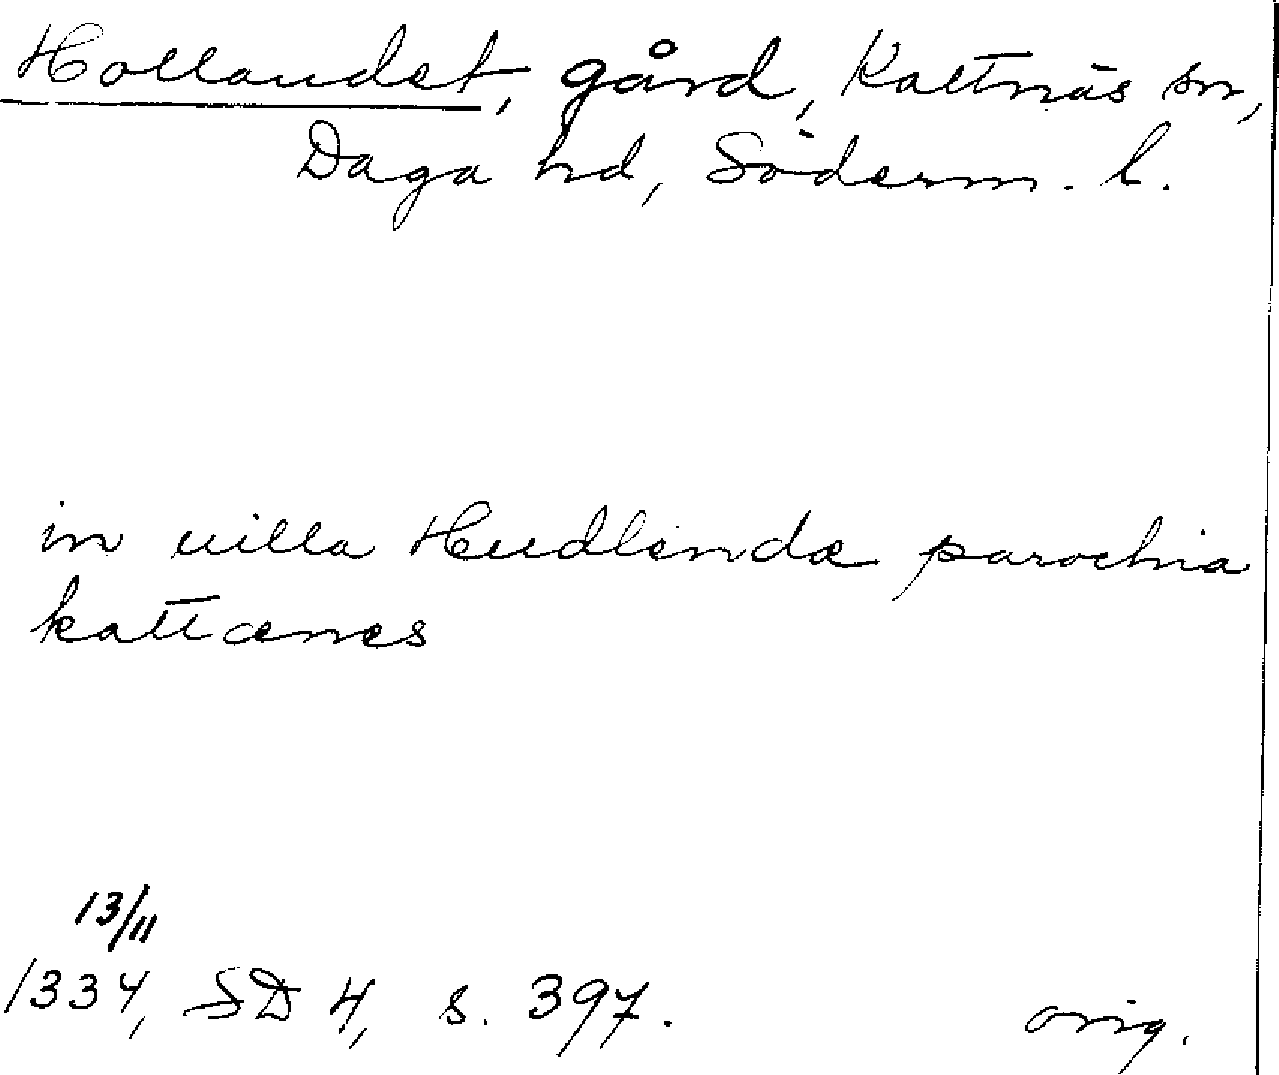 Hollandet, gård, Kattnäs sn,
Daga hd, Söderm. l.
in uilla Hudlende parochia
kattænes
13/11
1334, SD 4, s. 397. orig.